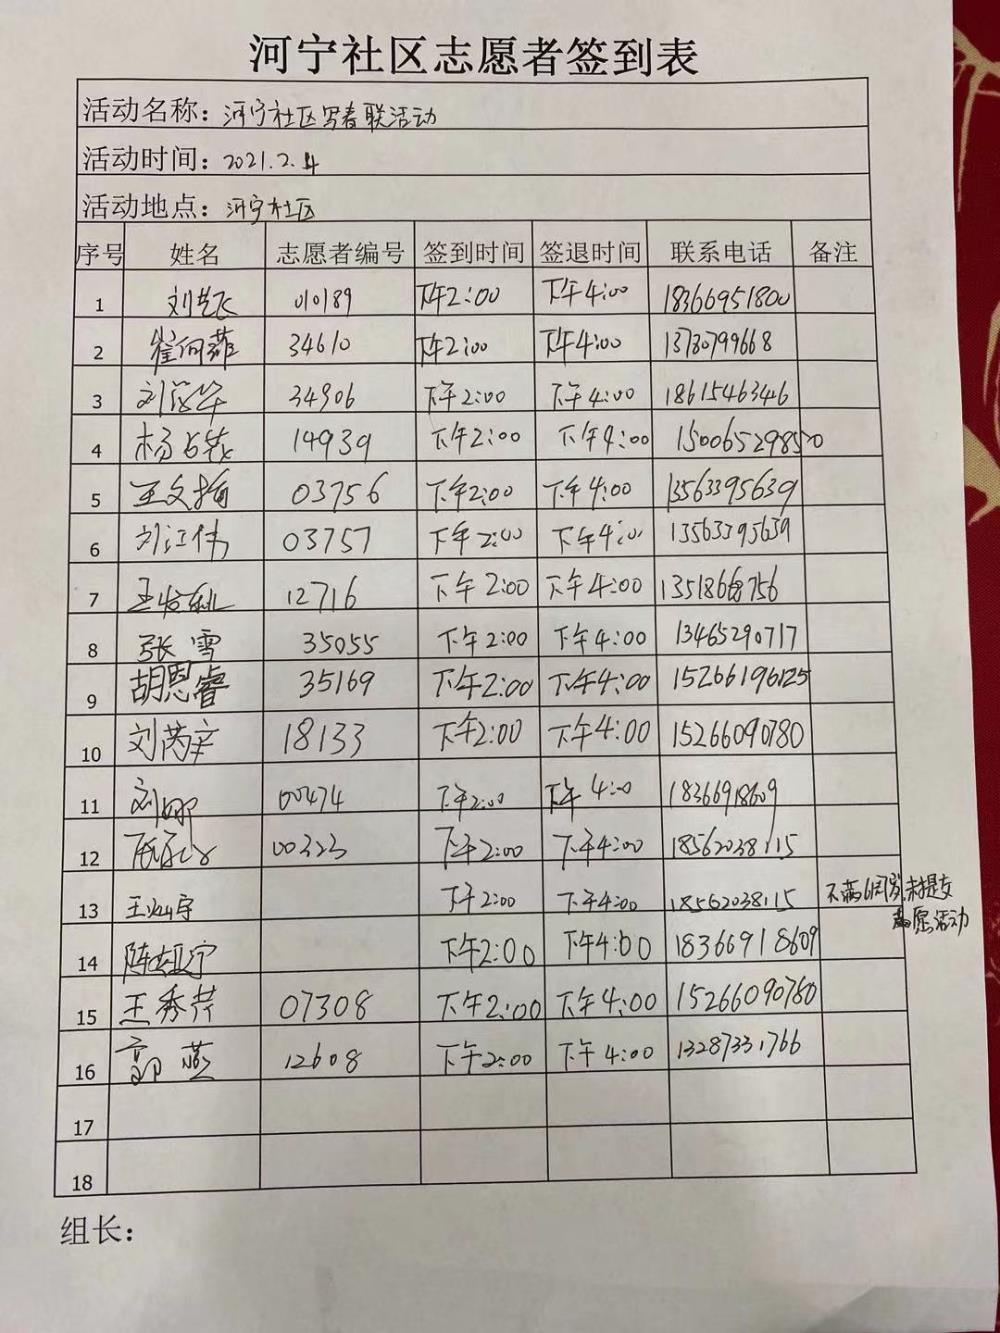 河宁社区志愿者签到表
活动名称：河宁社区写春联活动
活动时间：2021.2.4
活动地点：河宁社区
序号 姓名 志愿者编号 签到时间 签退时间 联系电话 备注
1 010189 下午2:00 下午4:00 18366951800
2 34610 下午2:00 下午4:00 13780799668
3 34906 下午2:00 下午4:00 18615463346
4 14939 下午2:00 下午4:00
5 03756 下午2:00 下午4:00 13563395639
6 刘江伟 03757 下午2:00 下午4:00 13563395639
7 12716 下午2:00 下午4:00
8 张雪 35055 下午2:00 下午4:00 13465290717
9 胡恩睿 35169 下午2:00 下午4:00 15266196125
10 刘芮辛 18133 下午2:00 下午4:00 15266090780
11 刘娜 00474 下午2:00 下午4:00 18366918609
12 00323 下午2:00 下午4:00 18562038115
13 王灿宇 下午2:00 下午4:00 18562038115 不满6周岁，未提交
志愿活动
14 下午2:00 下午4:00 18366918609
15 王秀芹 07308 下午2:00 下午4:00 15266090780
16 郭燕 12608 下午2:00 下午4:00 13287331766
17
18
组长：